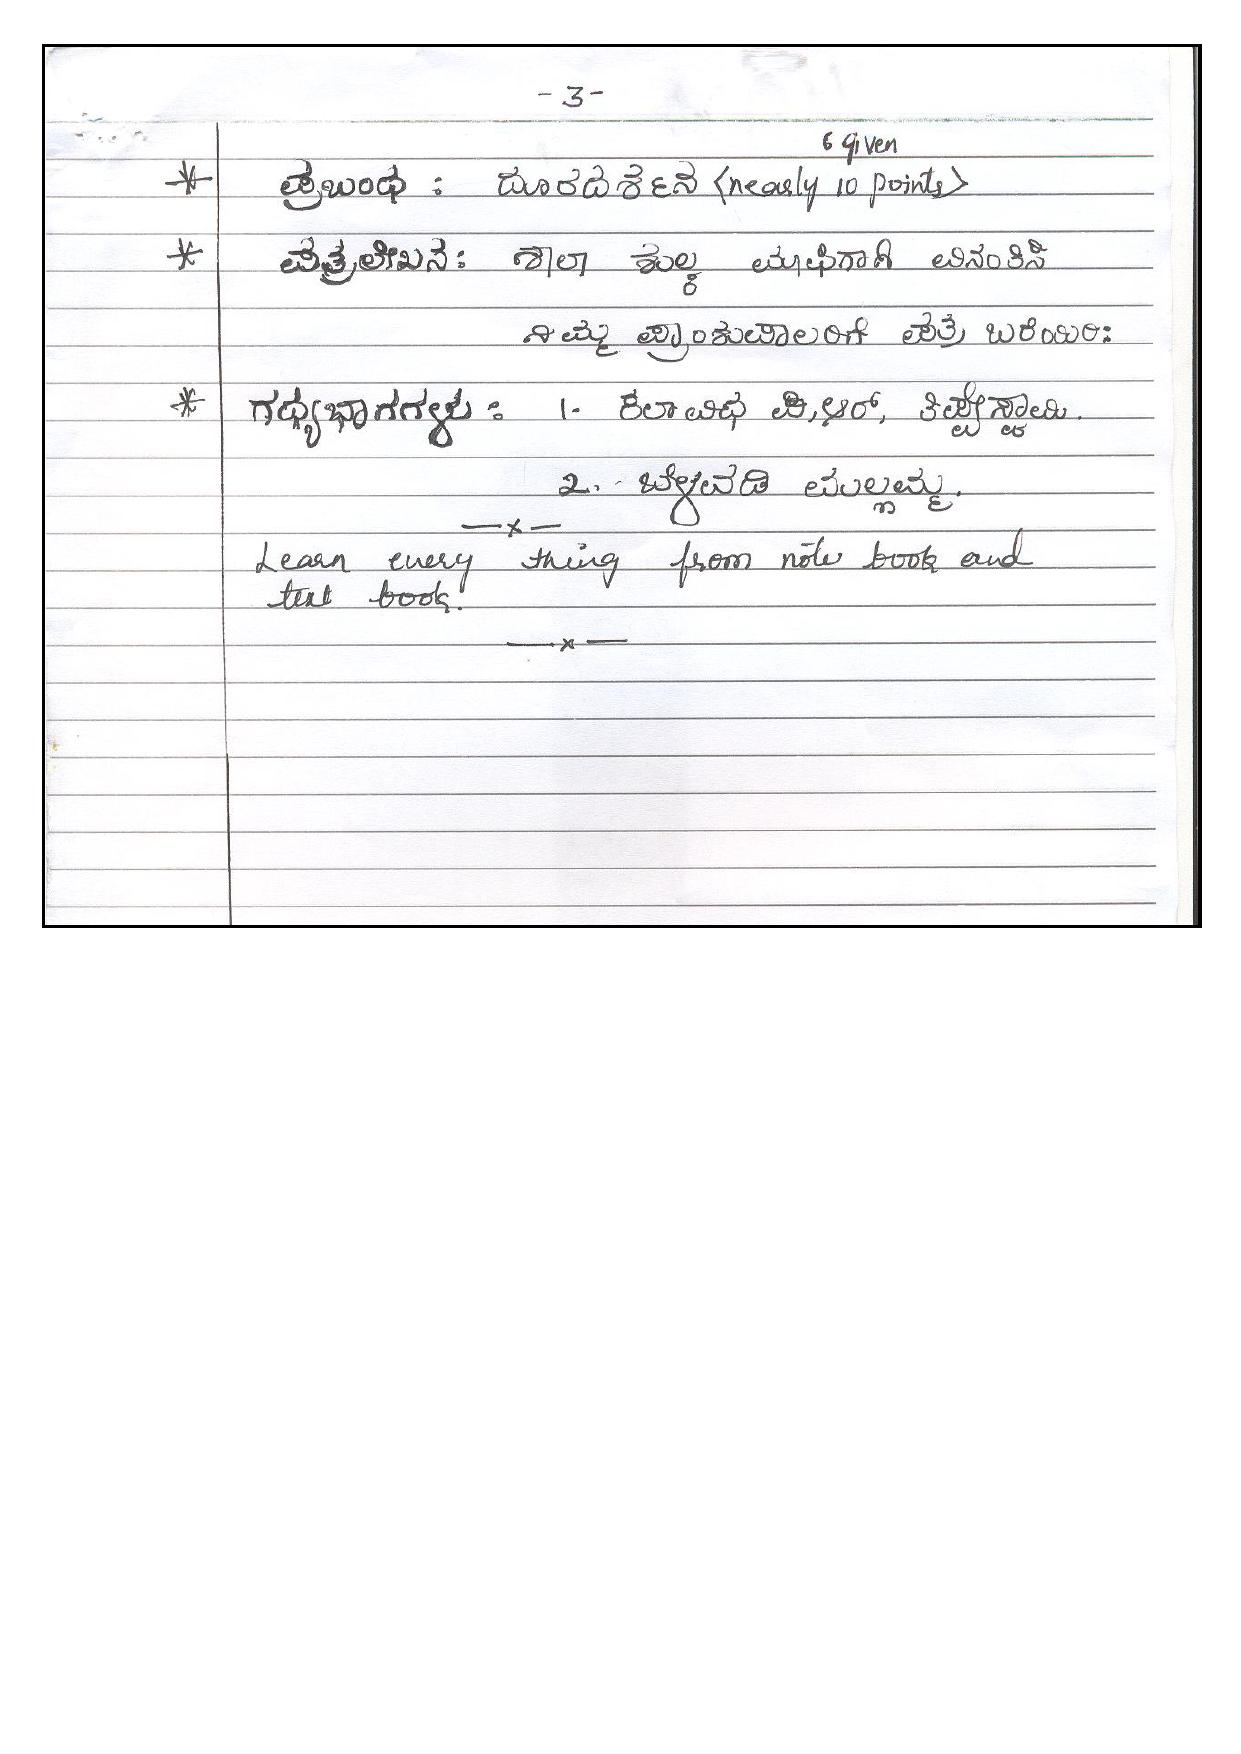 -3-
6 given
ಪ್ರಬಂಧ : ದೂರದರ್ಶನ <nearly 10 points>
ಪತ್ರಲೇಖನ : ಶಾಲಾ ಶುಲ್ಕ ಮಾಫಿಗಾಗಿ ವಿನಂತಿಸಿ
ನಿಮ್ಮ ಪ್ರಾಂಶುಪಾಲರಿಗೆ ಪತ್ರ ಬರೆಯಿರಿ:
ಗಧ್ಯಭಾಗಗಳು : 1. ಕಲಾವಿಧ ಪಿ,ಆರ್, ತಿಪ್ಪೇಸ್ವಾಮಿ.
2. ಬೆಳವಡಿ ಮಲ್ಲಮ್ಮ.
—x—
Learn every thing from note book and
text book.
—x—